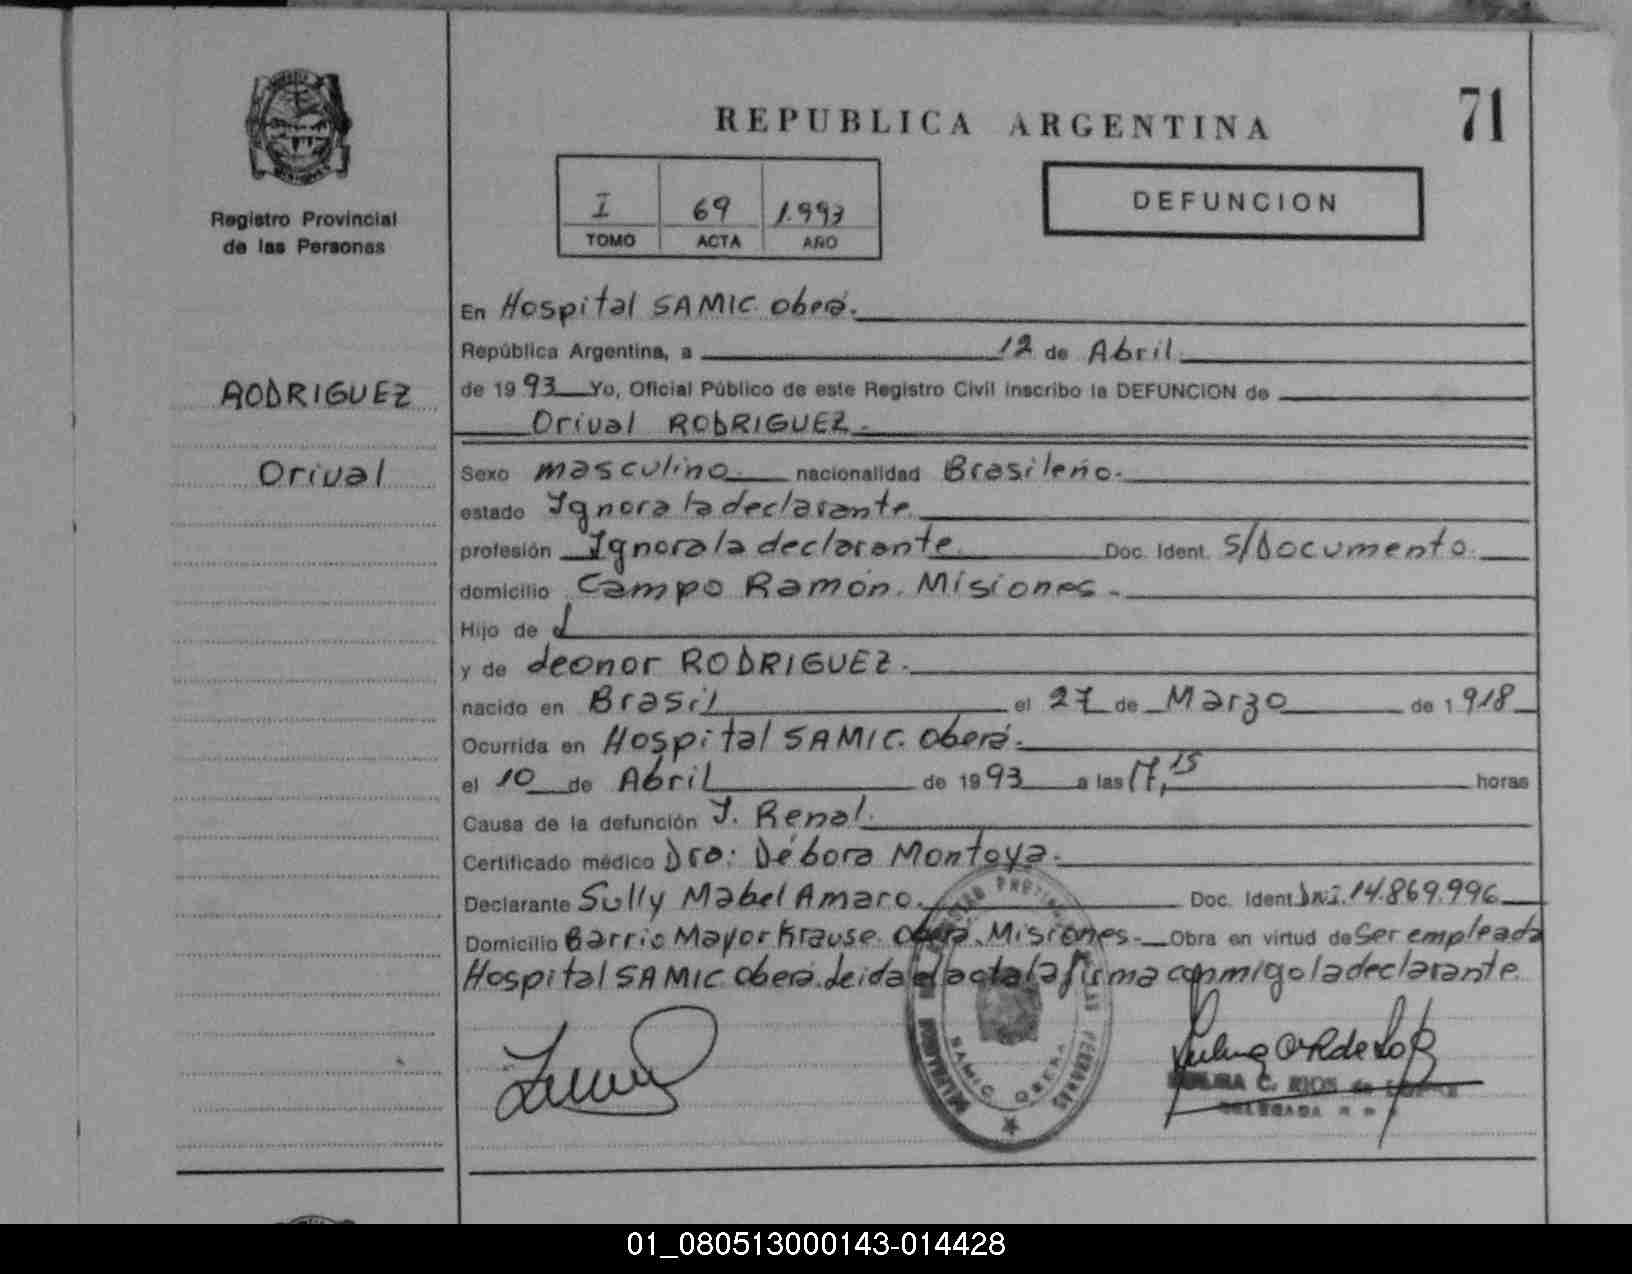 Registro Provincial
de las Personas
RODRIGUEZ
Orival
REPUBLICA ARGENTINA
71
I 69 1.993
TOMO ACTA AÑO
DEFUNCION
En Hospital SAMIC. Oberá.
República Argentina, a 12 de Abril
de 1993 Yo, Oficial Público de este Registro Civil inscribo la DEFUNCION de
Orival RODRIGUEZ.
Sexo masculino. nacionalidad Brasileño.
estado Ignora la declarante.
profesión Ignora la declarante. Doc. Ident. S/Documento.
domicilio Campo Ramón. Misiones.
Hijo de
y de Leonor RODRIGUEZ.
nacido en Brasil el 27 de Marzo de 1918
Ocurrida en Hospital SAMIC. Oberá.
el 10 de Abril de 1993 a las 17,15 horas
Causa de la defunción I. Renal.
Certificado médico Dra: Débora Montoya.
Declarante Sully Mabel Amaro. Doc. Ident D.N.I. 14.869.996
Domicilio Barrio Mayor Krause. Oberá. Misiones. Obra en virtud de Ser empleada
Hospital SAMIC Oberá. Leida el acta la firma conmigo la declarante.
SAMIC OBERA
C. RIOS de
DELEGADA
01_080513000143-014428